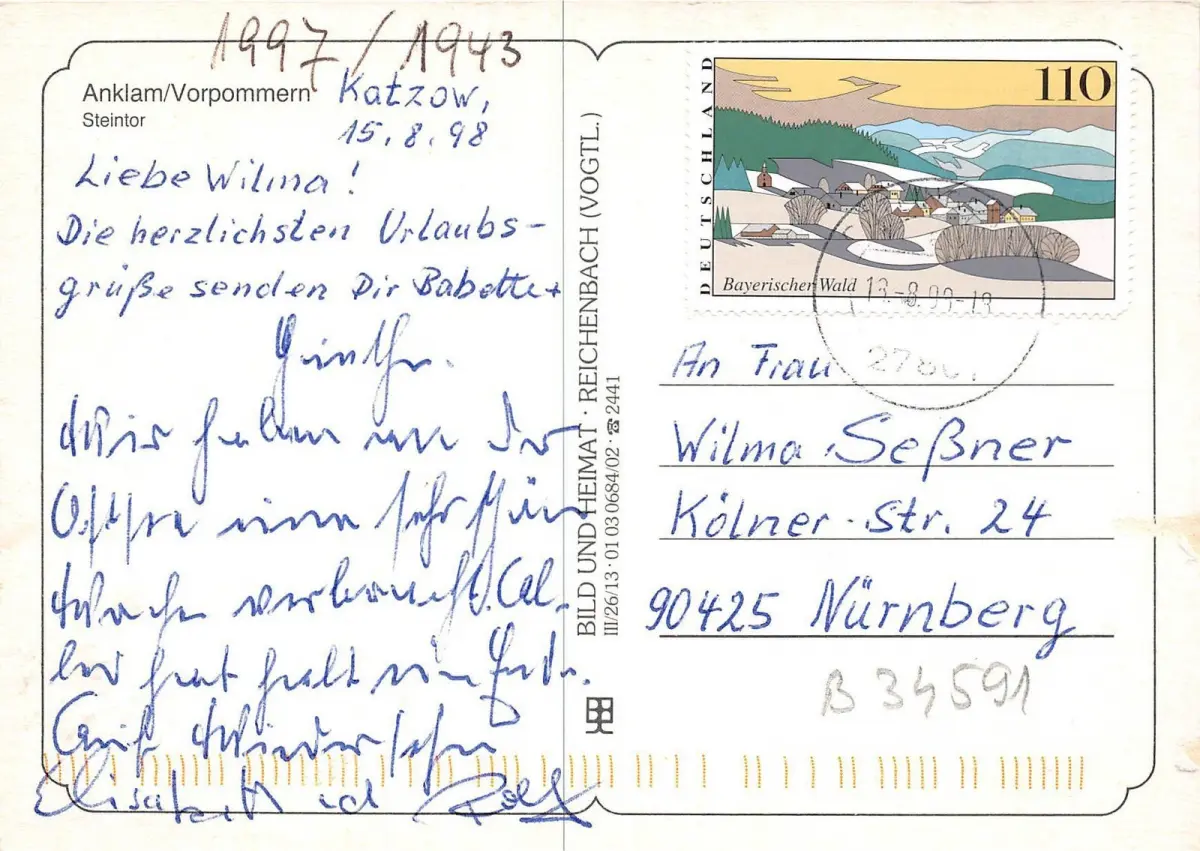 1997/1943
Anklam/Vorpommern
Steintor
Katzow,
15.8.98
Liebe Wilma!
Die herzlichsten Urlaubs-
grüße senden Dir Babette +
Günther.
Wir haben an der
Ostsee eine sehr schöne
Woche verbracht. Al-
les hat halt ein Ende.
Auf Wiedersehn
Elisabeth Rolf
BILD UND HEIMAT · REICHENBACH (VOGTL.)
III/26/13 · 01 03 0684/02 · ☎ 2441
DEUTSCHLAND
110
Bayerischer Wald
An Frau
Wilma Seßner
Kölner-Str. 24
90425 Nürnberg
B 34591